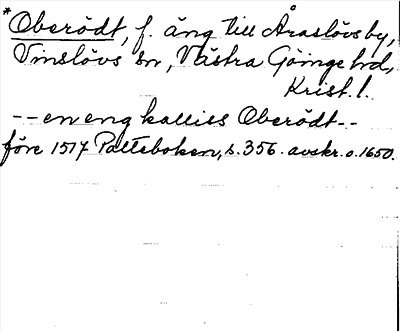 * Oberödt, f. äng till Åraslövs by,
Vinslövs sn, Västra Göinge hd,
Krist. l.
-- en eng kalliss Oberödt --
före 1517 Palteboken, s. 356. avskr. o. 1650.